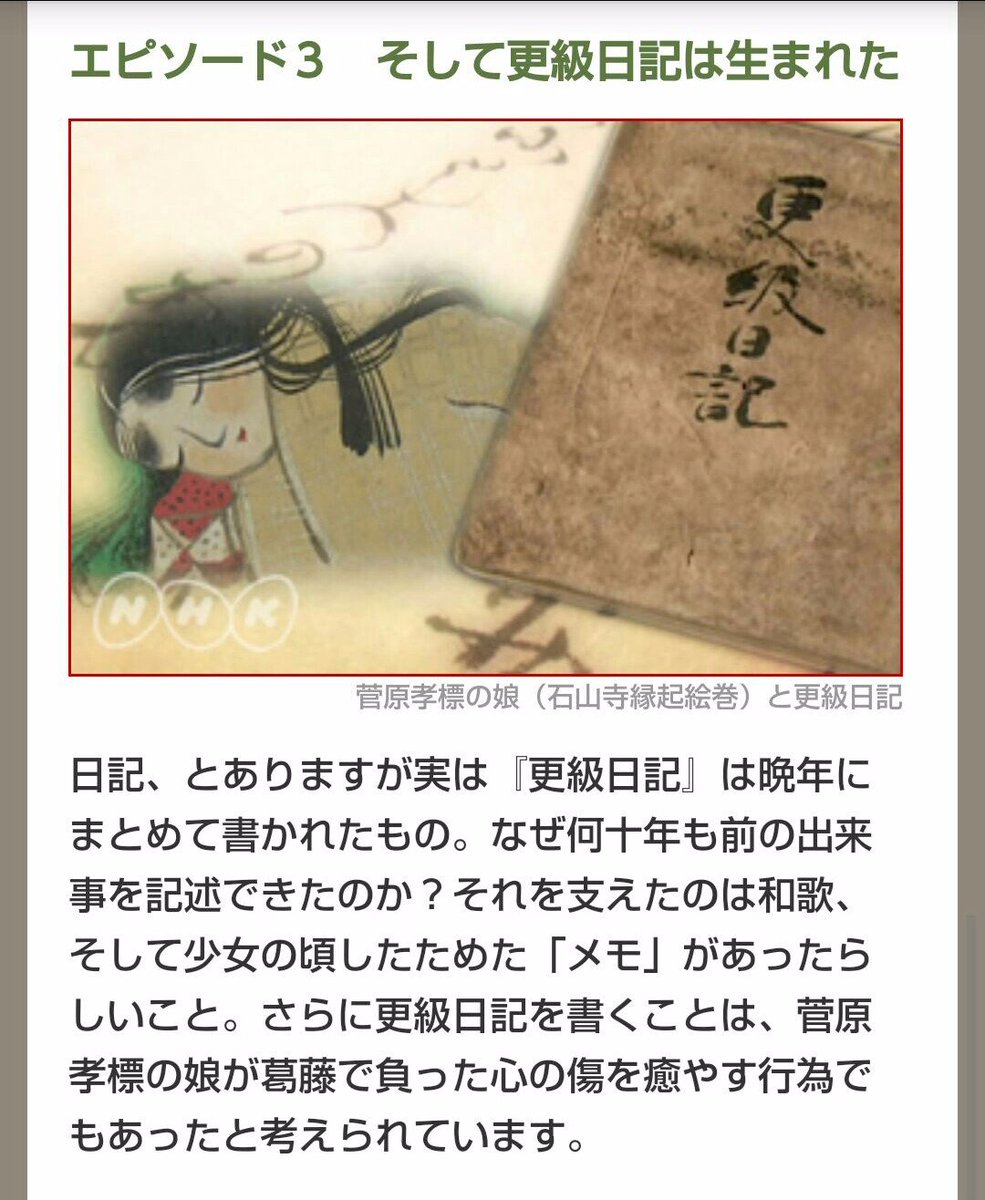 エピソード3　そして更級日記は生まれた
更級日記
NHK
菅原孝標の娘（石山寺縁起絵巻）と更級日記
日記、とありますが実は『更級日記』は晩年に
まとめて書かれたもの。なぜ何十年も前の出来
事を記述できたのか？それを支えたのは和歌、
そして少女の頃したためた「メモ」があったら
しいこと。さらに更級日記を書くことは、菅原
孝標の娘が葛藤で負った心の傷を癒やす行為で
もあったと考えられています。